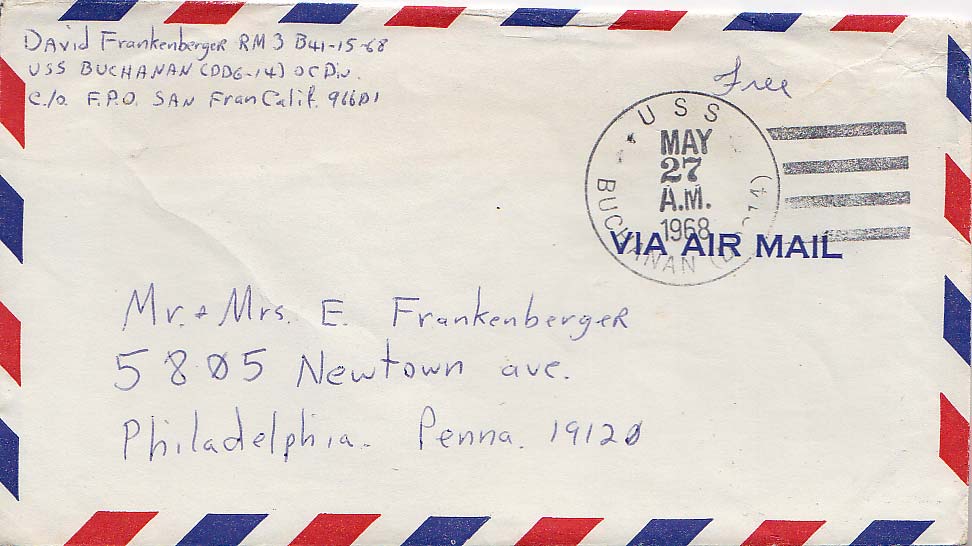 David Frankenberger RM3 B41-15-68
USS BUCHANAN (DDG-14) OC Div.
c/o F.P.O. SAN Fran Calif. 96601
Free
USS
MAY
27
A.M.
1968
BUCHANAN (DDG14)
VIA AIR MAIL
Mr. + Mrs. E. Frankenberger
5805 Newtown ave.
Philadelphia. Penna. 19120